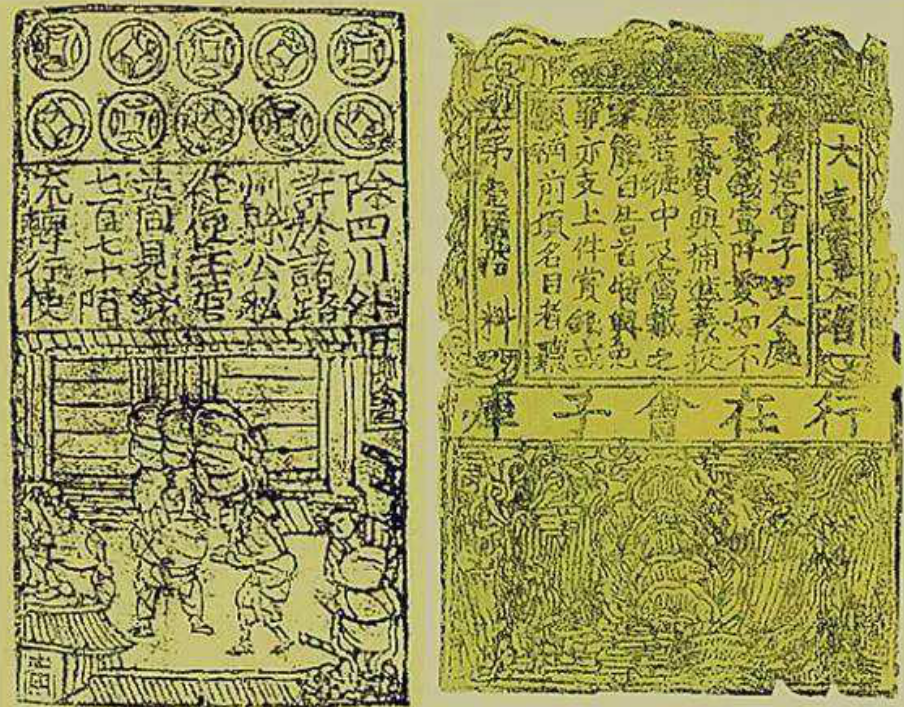 除四川外
許於諸路
州縣公私
從便主管
並同見錢
七百七十陌
流轉行使
大壹貫文省
敕偽造會子犯人處
斬賞錢壹阡貫如不
願支賞與補進義校
尉若徒中及窩藏之
家能自告首特與免
罪亦支上件賞錢或
願補前項名目者聽
第壹料
行在會子庫